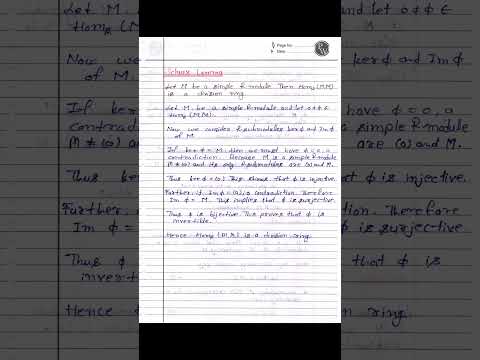 Page No.
Date
Schur's Lemma
Let M be a simple R-module Then Hom_R(M,M)
is a division ring.
Let M be a simple R-module and let 0≠ϕ∈
Hom_R(M,M).
Now we consider R-submodules kerϕ and Imϕ
of M.
If kerϕ=M then we must have ϕ=0, a
contradiction. Because M is a simple R-module
M≠(0) and its only R-submodules are (0) and M.
Thus kerϕ=(0). This shows that ϕ is injective.
Further, if Imϕ=(0), a contradiction. Therefore
Imϕ=M. This implies that ϕ is surjective.
Thus ϕ is bijective. This proves that ϕ is
invertible.
Hence Hom_R(M,M) is a division ring.